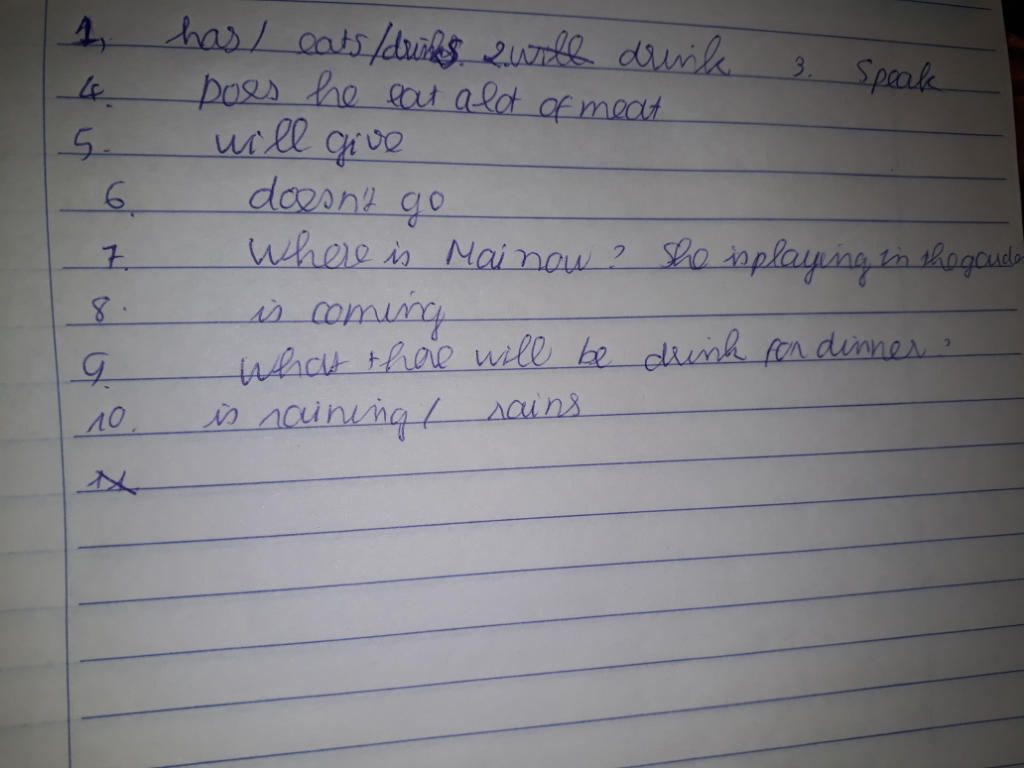 1, has/ eats/drinks 2. will drink 3. Speak
4. Does he eat alot of meat
5. will give
6. doesn't go
7. Where is Mai now? She is playing in the garde
8. is coming
9. What there will be drink for dinner?
10. is raining/ rains